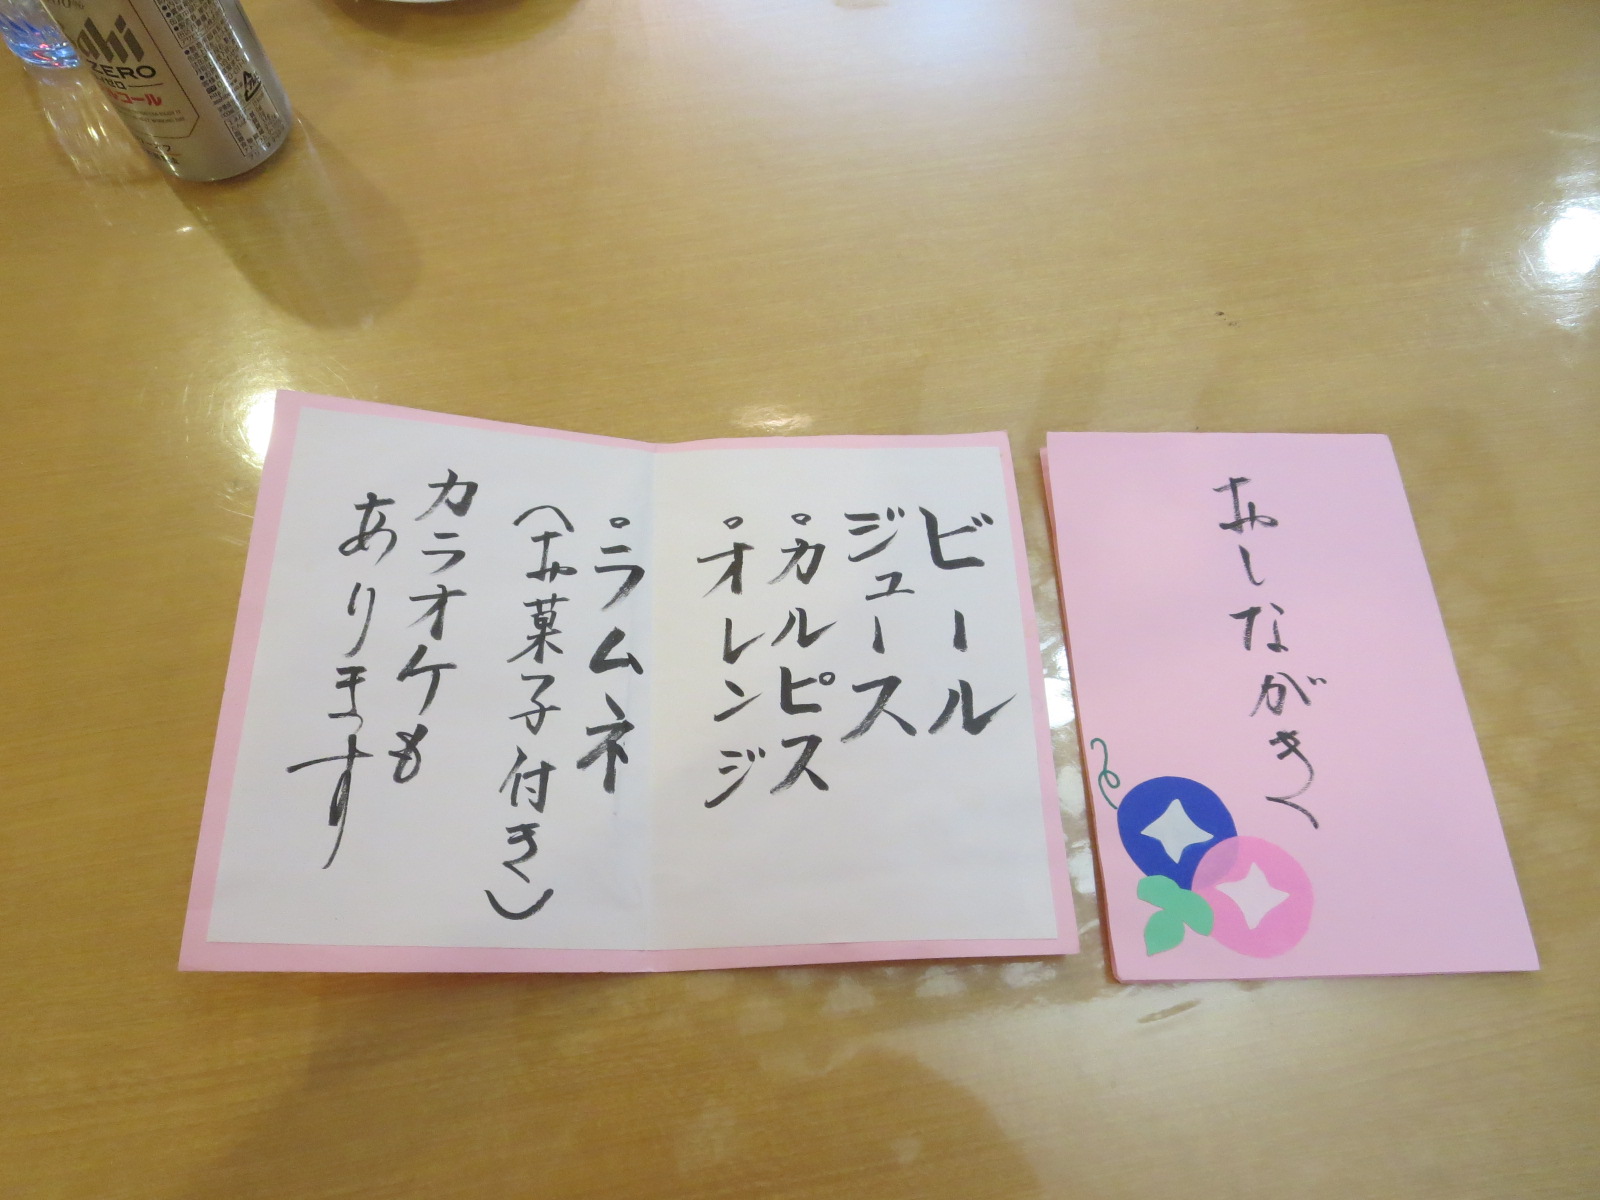 おしながき
ビール
ジュース
・カルピス
・オレンジ
・ラムネ
(お菓子付き)
カラオケも
あります
ZERO